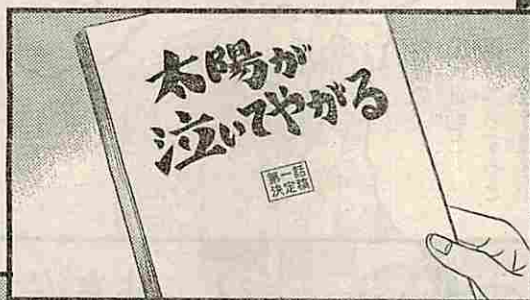 太陽が
泣いてやがる
第一話
決定稿